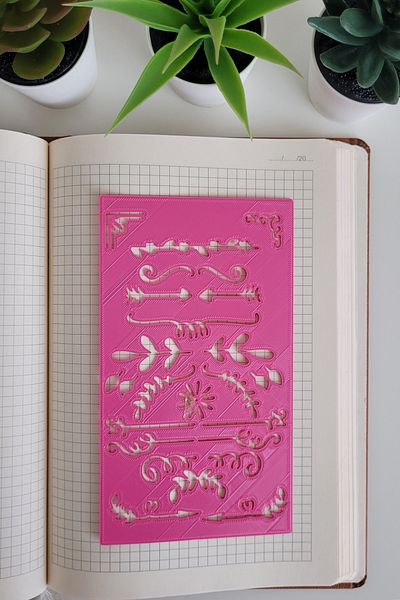 / /20